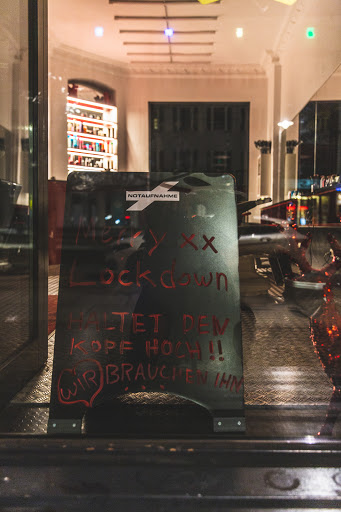 NOTAUFNAHME
Merry xx
Lockdown
HALTET DEN
KOPF HOCH!!
WiR BRAUCHEN IHN